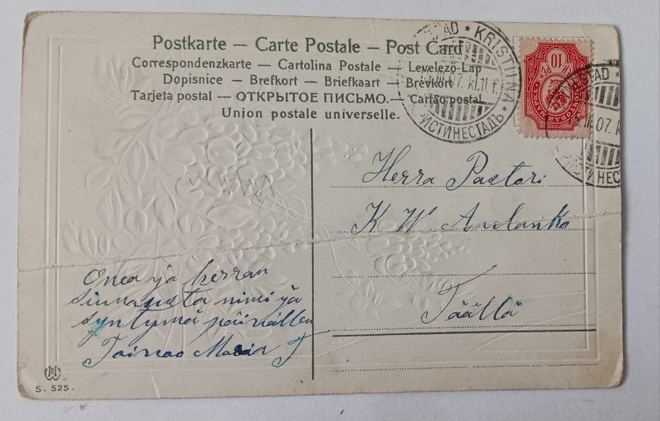 Postkarte — Carte Postale — Post Card
Correspondenzkarte — Cartolina Postale — Levelező-Lap
Dopisnice — Brefkort — Briefkaart — Brevkort
Tarjeta postal — ОТКРЫТОЕ ПИСЬМО. — Cartao postal
Union postale universelle.
KRISTIINA
ИСТИНЕСТАДЪ
10
07
Herra Pastori
K W
Täällä
Onea ja herran
siunausta nimi ja
syntymä päivällen
Toivoo
S. 525.